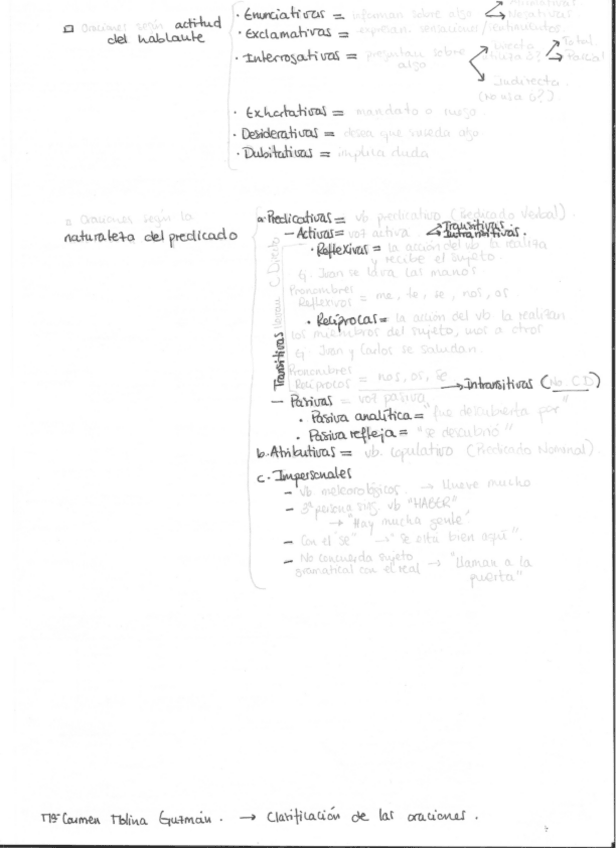 Afirmativas
□ Oraciones según actitud · Enunciativas = informan sobre algo Negativas
del hablante · Exclamativas = expresan sensaciones/sentimientos.
· Interrogativas = preguntan sobre algo Directa Total Parcial
Indirecta
(No usa ¿?)
· Exhortativas = mandato o ruego.
· Desiderativas = desea que suceda algo.
· Dubitativas = implica duda
□ Oraciones según la
naturaleza del predicado
a. Predicativas = vb predicativo (Predicado Verbal).
– Activas = voz activa Transitivas Intransitivas.
· Reflexivas = la acción del vb la realiza
y recibe el sujeto.
Ej. Juan se lava las manos.
Pronombres
Reflexivos = me, te, se, nos, os
· Recíprocas = la acción del vb la realizan
los miembros del sujeto, unos a otros
Ej. Juan y Carlos se saludan.
Pronombres
Recíprocos = nos, os, se
Transitivas llevan C. Directo
→ Intransitivas (No CD)
– Pasivas = voz pasiva
· Pasiva analítica = "fue descubierta por"
· Pasiva refleja = "se descubrió"
b. Atributivas = vb. copulativo (Predicado Nominal).
c. Impersonales
– vb. meteorológicos. → llueve mucho
– 3ª persona sing. vb "HABER"
→ "Hay mucha gente"
– Con el "se" → "se está bien aquí".
– No concuerda sujeto
gramatical con el real → "Llaman a la
puerta"
Mª Carmen Molina Guzmán. → Clasificación de las oraciones.